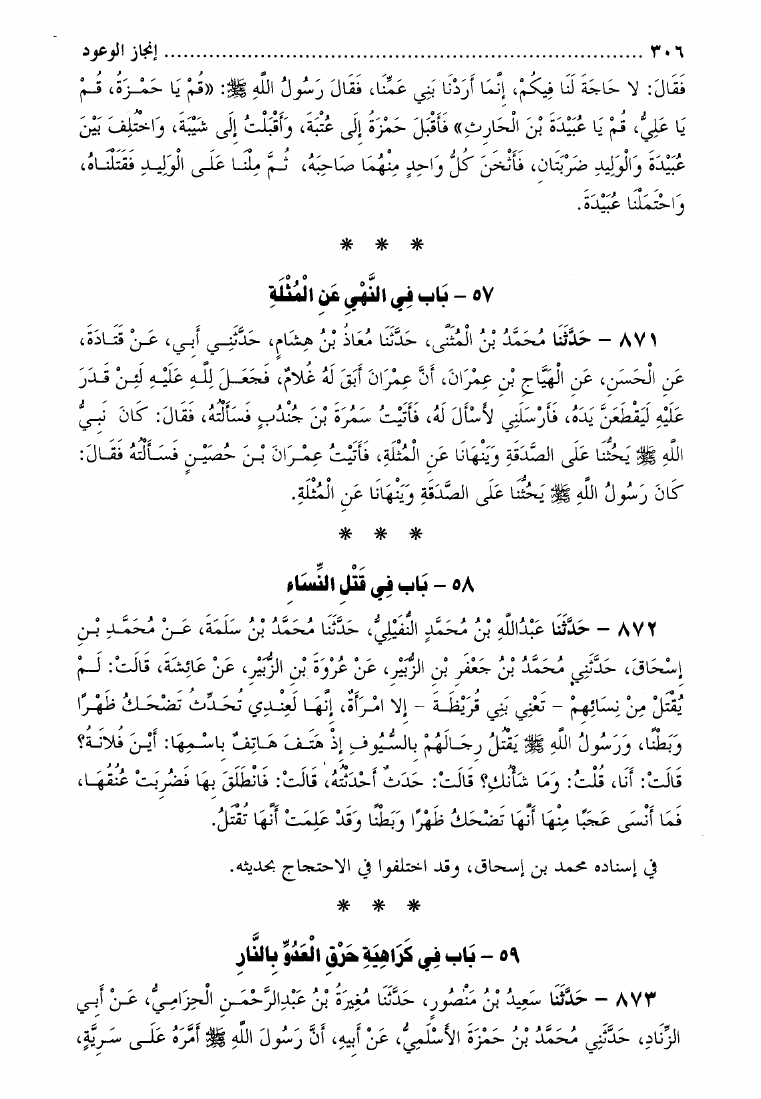 ٣٠٦ ........................................................................ إنجاز الوعود
فَقَالَ: لا حَاجَةَ لَنَا فِيكُمْ، إِنَّمَا أَرَدْنَا بَنِي عَمِّنَا، فَقَالَ رَسُولُ اللَّهِ ﷺ: «قُمْ يَا حَمْزَةُ، قُمْ
يَا عَلِيُّ، قُمْ يَا عُبَيْدَةَ بْنَ الْحَارِثِ» فَأَقْبَلَ حَمْزَةُ إِلَى عُتْبَةَ، وَأَقْبَلْتُ إِلَى شَيْبَةَ، وَاخْتُلِفَ بَيْنَ
عُبَيْدَةَ وَالْوَلِيدِ ضَرْبَتَانِ، فَأَثْخَنَ كُلُّ وَاحِدٍ مِنْهُمَا صَاحِبَهُ، ثُمَّ مِلْنَا عَلَى الْوَلِيدِ فَقَتَلْنَاهُ،
وَاحْتَمَلْنَا عُبَيْدَةَ.
* * *
٥٧ – بَاب فِي النَّهْيِ عَنِ الْمُثْلَةِ
٨٧١ – حَدَّثَنَا مُحَمَّدُ بْنُ الْمُثَنَّى، حَدَّثَنَا مُعَاذُ بْنُ هِشَامٍ، حَدَّثَنِي أَبِي، عَنْ قَتَادَةَ،
عَنِ الْحَسَنِ، عَنِ الْهَيَّاجِ بْنِ عِمْرَانَ، أَنَّ عِمْرَانَ أَبَقَ لَهُ غُلامٌ، فَجَعَلَ لِلَّهِ عَلَيْهِ لَئِنْ قَدَرَ
عَلَيْهِ لَيَقْطَعَنَّ يَدَهُ، فَأَرْسَلَنِي لأَسْأَلَ لَهُ، فَأَتَيْتُ سَمُرَةَ بْنَ جُنْدُبٍ فَسَأَلْتُهُ، فَقَالَ: كَانَ نَبِيُّ
اللَّهِ ﷺ يَحُثُّنَا عَلَى الصَّدَقَةِ وَيَنْهَانَا عَنِ الْمُثْلَةِ، فَأَتَيْتُ عِمْرَانَ بْنَ حُصَيْنٍ فَسَأَلْتُهُ فَقَالَ:
كَانَ رَسُولُ اللَّهِ ﷺ يَحُثُّنَا عَلَى الصَّدَقَةِ وَيَنْهَانَا عَنِ الْمُثْلَةِ.
* * *
٥٨ – بَاب فِي قَتْلِ النِّسَاءِ
٨٧٢ – حَدَّثَنَا عَبْدُاللَّهِ بْنُ مُحَمَّدٍ النُّفَيْلِيُّ، حَدَّثَنَا مُحَمَّدُ بْنُ سَلَمَةَ، عَنْ مُحَمَّدِ بْنِ
إِسْحَاقَ، حَدَّثَنِي مُحَمَّدُ بْنُ جَعْفَرِ بْنِ الزُّبَيْرِ، عَنْ عُرْوَةَ بْنِ الزُّبَيْرِ، عَنْ عَائِشَةَ، قَالَتْ: لَمْ
يُقْتَلْ مِنْ نِسَائِهِمْ – تَعْنِي بَنِي قُرَيْظَةَ – إِلا امْرَأَةٌ، إِنَّهَا لَعِنْدِي تُحَدِّثُ تَضْحَكُ ظَهْرًا
وَبَطْنًا، وَرَسُولُ اللَّهِ ﷺ يَقْتُلُ رِجَالَهُمْ بِالسُّيُوفِ إِذْ هَتَفَ هَاتِفٌ بِاسْمِهَا: أَيْنَ فُلانَةُ؟
قَالَتْ: أَنَا، قُلْتُ: وَمَا شَأْنُكِ؟ قَالَتْ: حَدَثٌ أَحْدَثْتُهُ، قَالَتْ: فَانْطَلَقَ بِهَا فَضُرِبَتْ عُنُقُهَا،
فَمَا أَنْسَى عَجَبًا مِنْهَا أَنَّهَا تَضْحَكُ ظَهْرًا وَبَطْنًا وَقَدْ عَلِمَتْ أَنَّهَا تُقْتَلُ.
في إسناده محمد بن إسحاق، وقد اختلفوا في الاحتجاج بحديثه.
* * *
٥٩ – بَاب فِي كَرَاهِيَةِ حَرْقِ الْعَدُوِّ بِالنَّارِ
٨٧٣ – حَدَّثَنَا سَعِيدُ بْنُ مَنْصُورٍ، حَدَّثَنَا مُغِيرَةُ بْنُ عَبْدِالرَّحْمَنِ الْحِزَامِيُّ، عَنْ أَبِي
الزِّنَادِ، حَدَّثَنِي مُحَمَّدُ بْنُ حَمْزَةَ الأَسْلَمِيُّ، عَنْ أَبِيهِ، أَنَّ رَسُولَ اللَّهِ ﷺ أَمَّرَهُ عَلَى سَرِيَّةٍ،